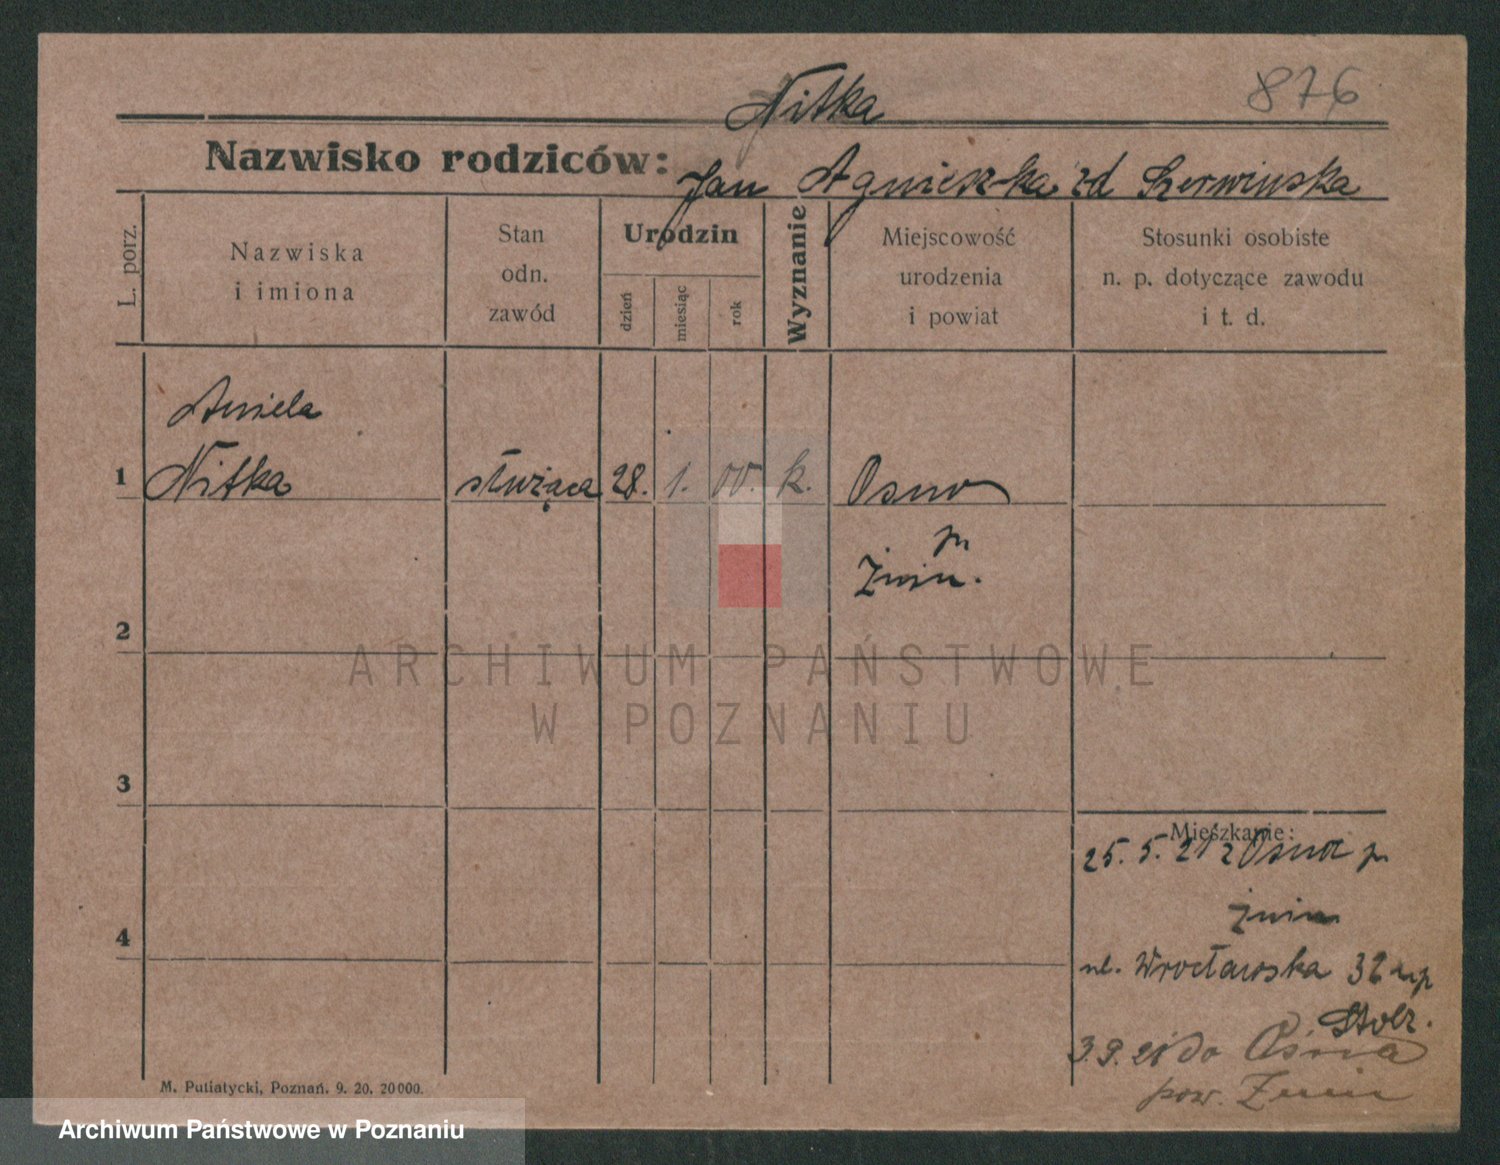 876
Nitka
Nazwisko rodziców: Jan Agnieszka zd Szerwinska
L. porz.
Nazwiska
i imiona
Stan
odn.
zawód
Urodzin
dzień
miesiąc
rok
Wyznanie
Miejscowość
urodzenia
i powiat
Stosunki osobiste
n. p. dotyczące zawodu
i t. d.
Aniela
1 Nitka służąca 28. 1. 00. k. Osno
p.
Żnin.
2
ARCHIWUM PAŃSTWOWE
W POZNANIU
3
Mieszkanie:
25. 5. 21 z Osna p.
Żnin
4
ul. Wrocławska 32
Stolz.
3.9.21 do Osna
pow. Żnin
M. Putiatycki, Poznań. 9. 20. 20000.
Archiwum Państwowe w Poznaniu